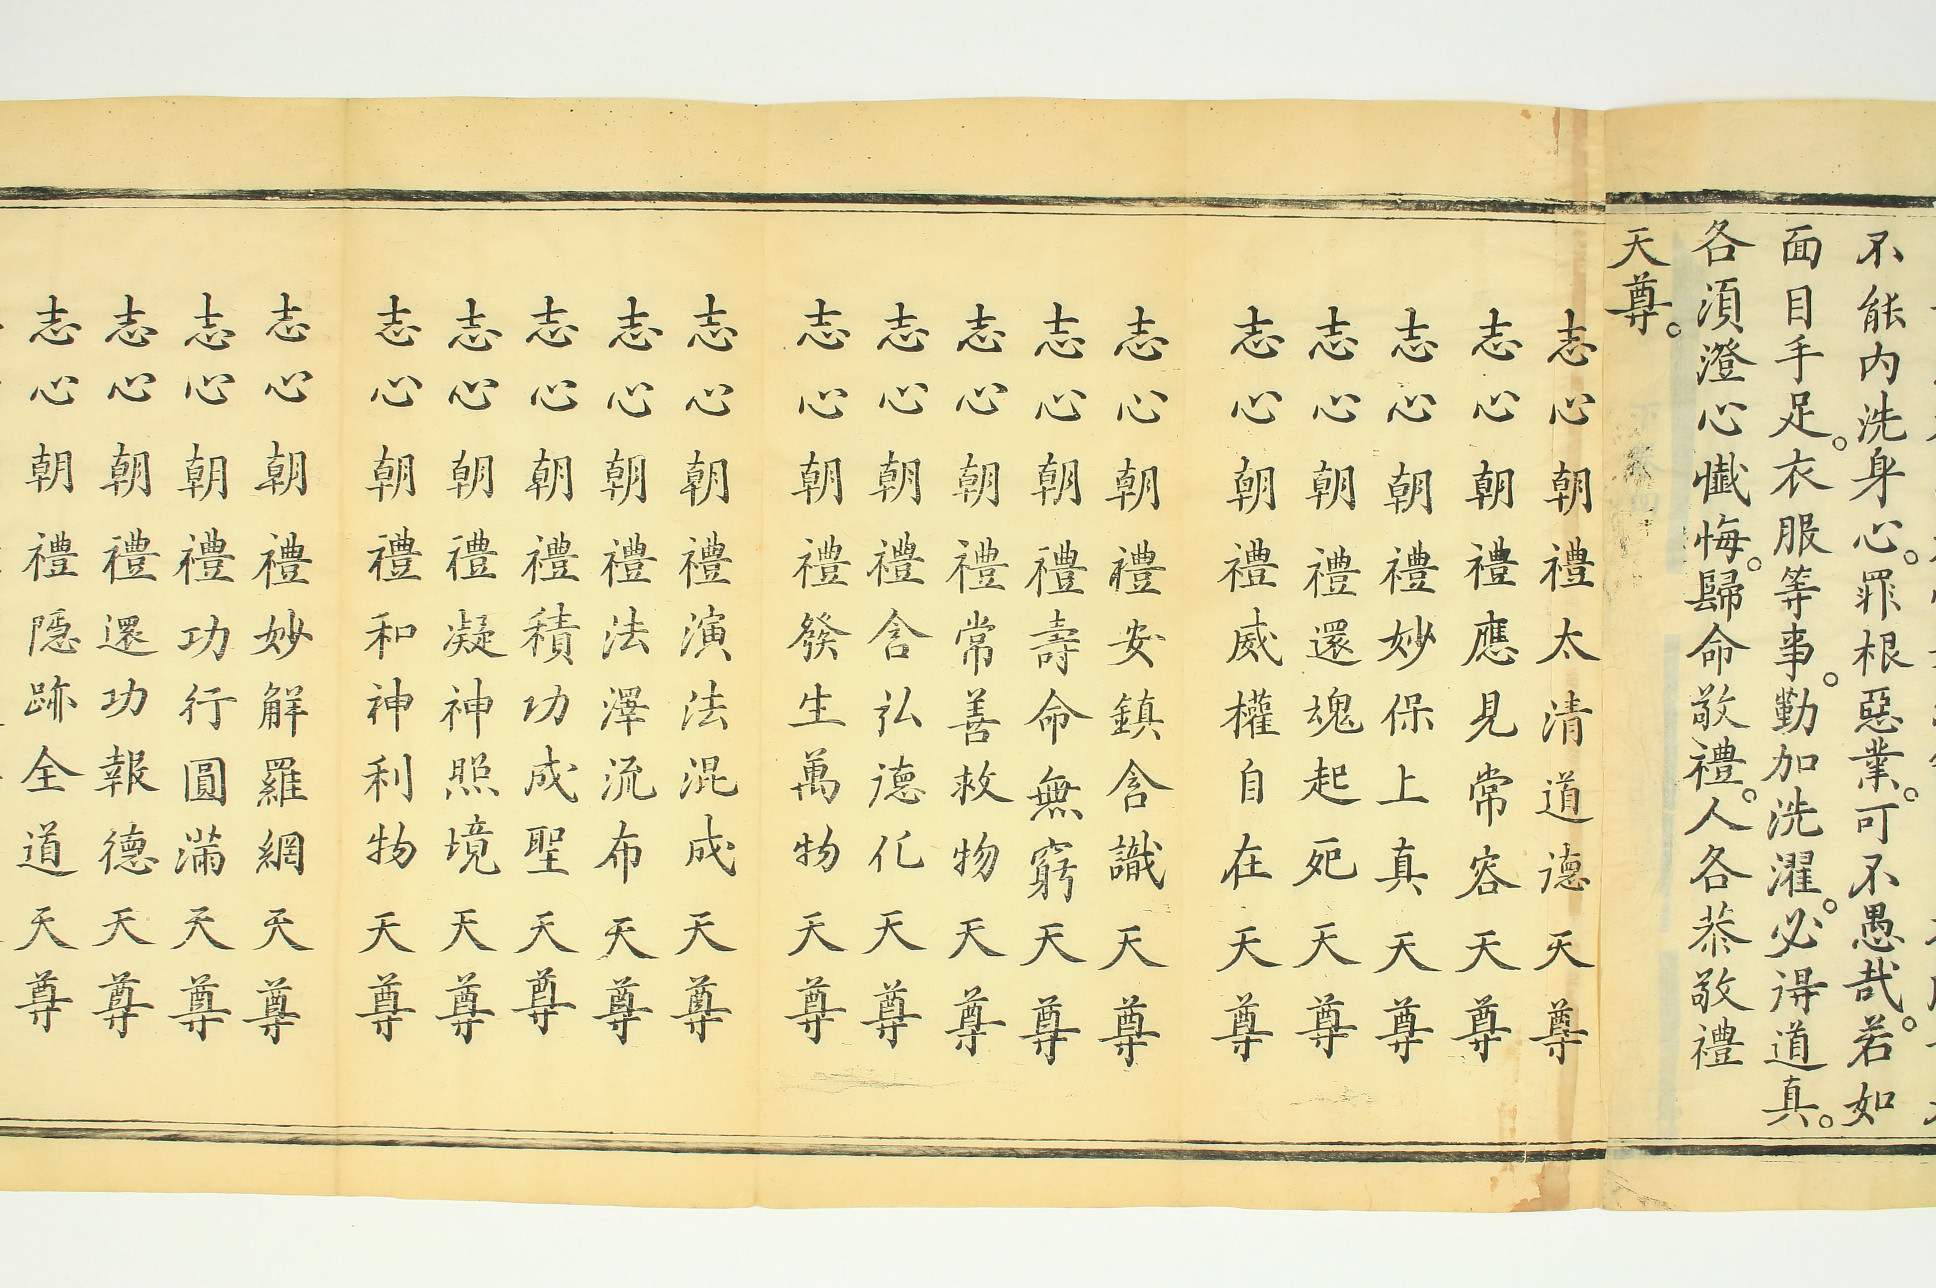 不能内洗身心。罪根惡業。可不愚哉。若如
面目手足。衣服等事。勤加洗濯。必得道真。
各須澄心懺悔。歸命敬禮。人各恭敬禮
天尊。
志心朝禮太清道德天尊
志心朝禮應見常容天尊
志心朝禮妙保上真天尊
志心朝禮還魂起死天尊
志心朝禮威權自在天尊
志心朝禮安鎮含識天尊
志心朝禮壽命無窮天尊
志心朝禮常善救物天尊
志心朝禮含弘德化天尊
志心朝禮發生萬物天尊
志心朝禮演法混成天尊
志心朝禮法澤流布天尊
志心朝禮積功成聖天尊
志心朝禮凝神照境天尊
志心朝禮和神利物天尊
志心朝禮妙解羅網天尊
志心朝禮功行圓滿天尊
志心朝禮還功報德天尊
志心朝禮隱跡全道天尊